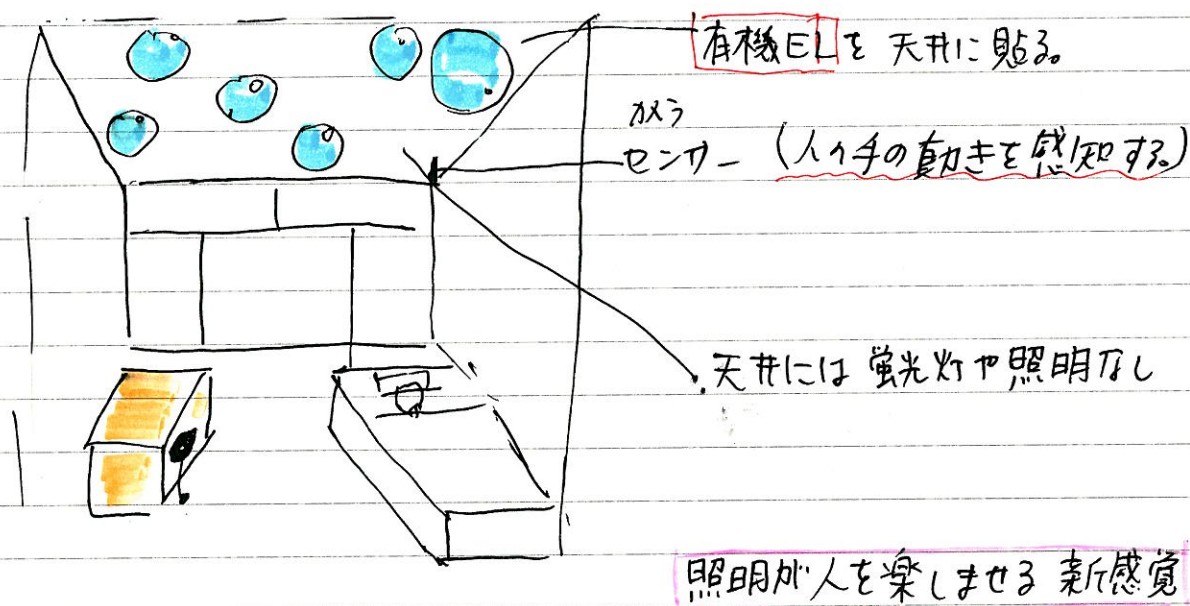 有機ELを天井に貼る。
カメラ
センサー (人の手の動きを感知する。)
天井には蛍光灯や照明なし
照明が人を楽しませる新感覚